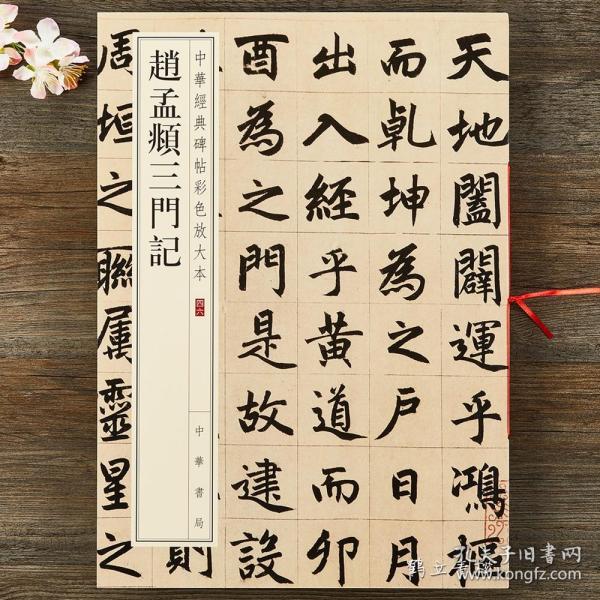 天地闔闢運乎鴻樞
而乹坤為之戶日月
出入經乎黄道而卯
酉為之門是故建設
則
周垣之聯属靈星之
中華經典碑帖彩色放大本
四六
趙孟頫三門記
中華書局
孔夫子旧书网
www.kongfz.com